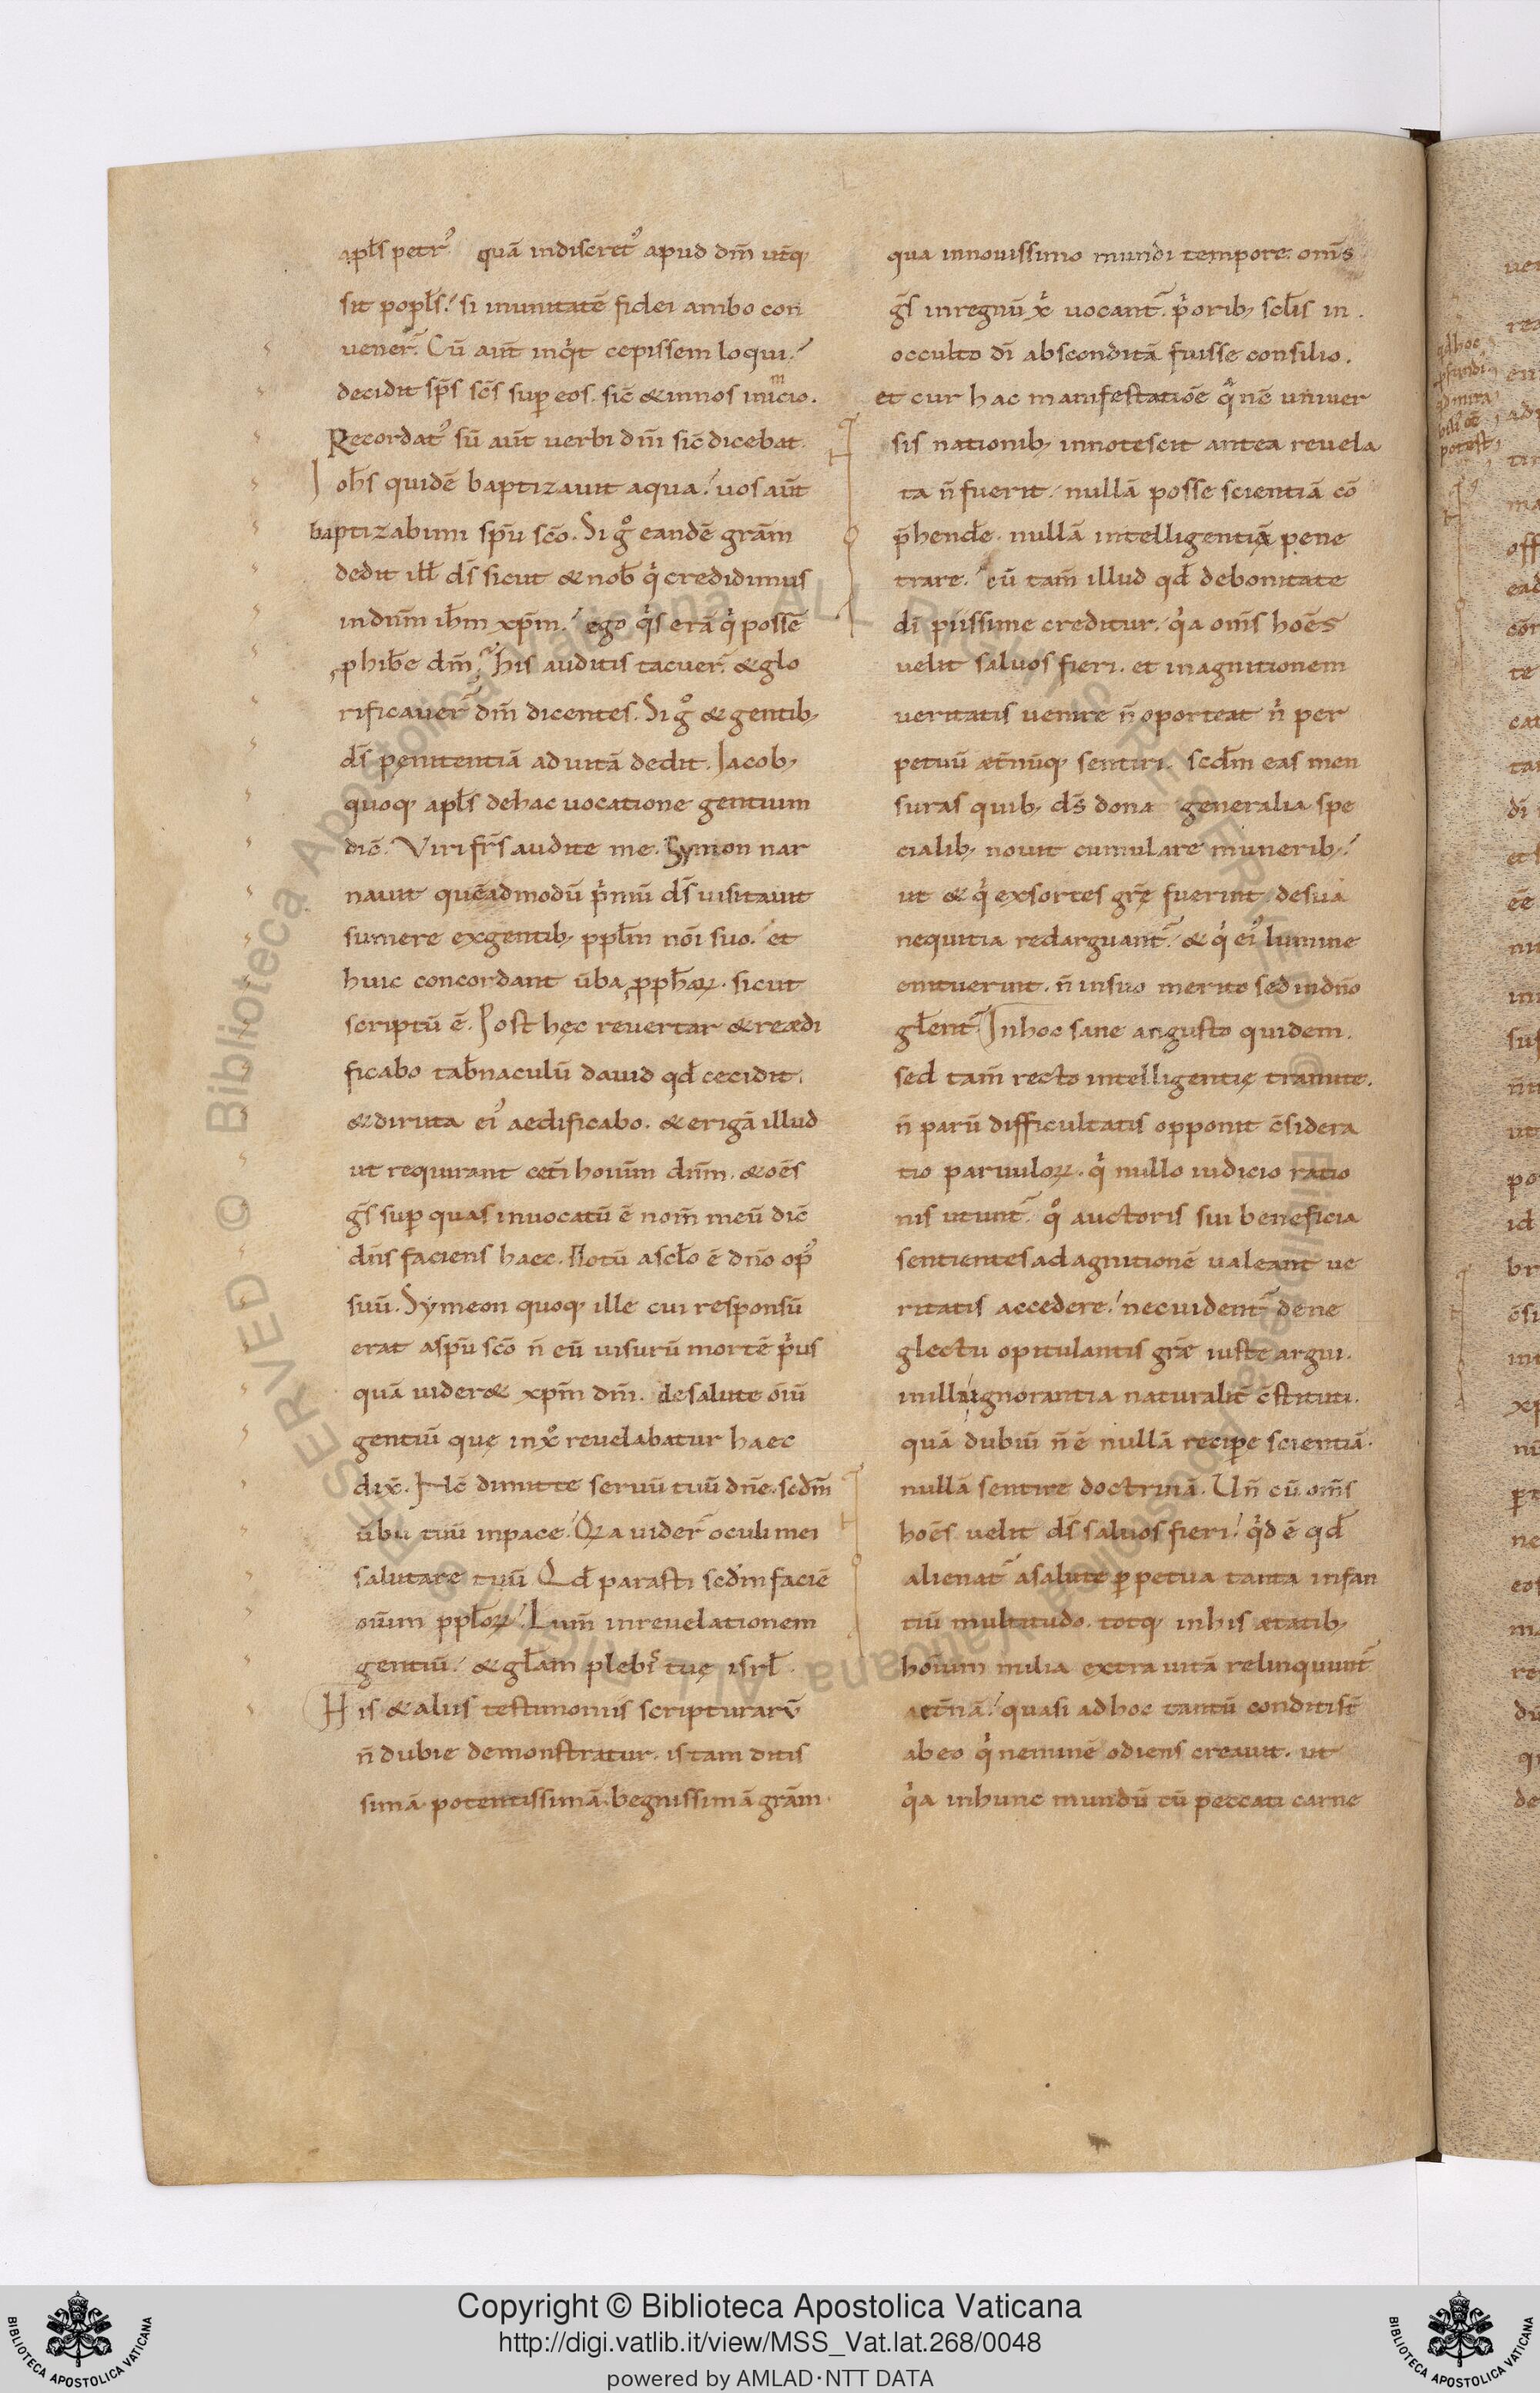 apl̄s petr᾿ quā indiscret᾿ apud dm̄ utq;
sit popl̄s. si inunitatē fidei ambo con
uener̄. Cū aut̄ inq̇t cepissem loqui.
decidit sp̄s sc̄s sup eos. sic̄ & innos inicio.
m
Recordat᾿ sū aut̄ uerbi dm̄ sic̄ dicebat.
Ioh̄s quidē baptizauit aqua. uos aut̄
baptizabimi spū scō. Si g̊ eandē grām
dedit ill̄ ds̄ sicut & nob̄ q̇ credidimus
indnm̄ ihm̄ xpm̄. ego q̇s erā q̇ possē
phibe dm̄. his auditis tacuer̄. & glo
rificauer̄ dm̄ dicentes. Si g̊ & gentib;
ds̄ penitentiā ad uitā dedit. Iacob;
quoq; apl̄s dehac uocatione gentium
dic̄. Viri frs̄ audite me. Symon nar
rauit quēadmodū ṗmū ds̄ uisitauit
sumere exgentib; ppl̄m nōi suo. et
huic concordant ūba pph̄aꝝ. sicut
scriptū ē. Post hęc reuertar & reædi
ficabo tab̄naculū dauid qd̄ cecidit.
& diruta ei᾿ aedificabo. & erigā illud
ut requirant cet̄i houm̄ dnm̄. & oēs
gs̄ sup quas inuocatū ē nom̄ meū dic̄
dn̄s faciens haec. Notū ascl̄o ē dn̄o op᾿
suū. Symeon quoq; ille cui responsū
erat aspū scō n̄ eū uisurū mortē ṗus
quā uider& xpm̄ dm̄. desalute oiū
gentiū quę inxo reuelabatur haec
dix̄. Nc̄ dimitte seruū tuū dn̄e. scdm̄
ūbū tuū inpace. Qꝝa uider̄ oculi mei
salutare tuū Qd̄ parasti scd̄m faciē
oium ppl̄oꝝ. Lum̄ inreuelationem
gentiū. & gl̄am plebi᾿ tuę isrl̄.
His & aliis testimoniis scripturarū
n̄ dubie demonstratur. istam ditis
simā. potentissimā. begnissimā grām.
qua innouissimo mundi tempore. oms̄
gs̄ inregnū x̄ uocant᾿. ṗorib; scl̄is in
occulto dī absconditā fuisse consilio.
et cur hac manifestatiōe q̊ nē uniuer
sis nationib; innotescit antea reuela
ta n̄ fuerit. nullā posse scientiā cō
p̄hende. nullā intelligentiā pene
trare. cū tam̄ illud qd̄ debonitate
dī piissime creditur. q̇a oms̄ hoēs
uelit saluos fieri. et inagnitionem
ueritatis uenire n̄ oporteat n̄ per
petuū æt̄nūq; sentiri. scdm̄ eas men
suras quib; ds̄ dona generalia spe
cialib; nouit cumulare munerib;
ut & q̇ exsortes gr̄ę fuerint desua
nequitia redarguant᾿. & q̇ ei᾿ lumine
enituerint. n̄ insuo merito sed indn̄o
gl̄ent᾿. Inhoc sane angusto quidem.
sed tam̄ recto intelligentię tramite.
n̄ parū difficultatis opponit c̄sidera
tio paruuloꝝ. q̇ nullo iudicio ratio
nis utunt᾿. q̊ auctoris sui beneficia
sentientes ad agnitionē ualeant ue
ritatis accedere. nec uident᾿ de ne
glectu opitulantis grē iuste argui.
inilla ignorantia naturalit̄ c̄stituti.
quā dubiū n̄ ē nullā recipe scientiā.
nullā sentire doctrinā. Un̄ cū oms̄
hoēs uelit ds̄ saluos fieri. q̇d ē qd̄
alienat᾿ asalute ppetua tanta infan
tiū multitudo. totq; inhis ætatib;
houm̄ milia extra uitā relinquunt᾿
aet̄nā. quasi adhoc tantū conditist̄
abeo q̇ neminē odiens creauit. ut
q̇a inhunc mundū cū peccati carne
Copyright © Biblioteca Apostolica Vaticana
http://digi.vatlib.it/view/MSS_Vat.lat.268/0048
powered by AMLAD·NTT DATA